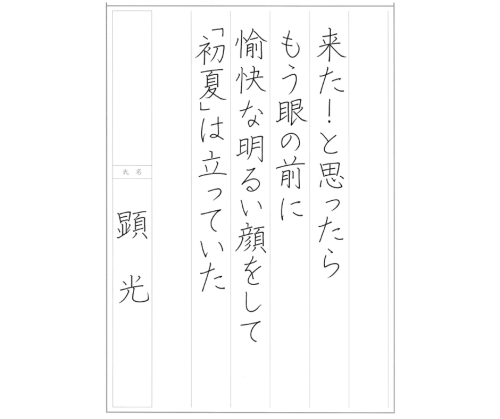 来た！と思ったら
もう眼の前に
愉快な明るい顔をして
「初夏」は立っていた
氏名
顕光